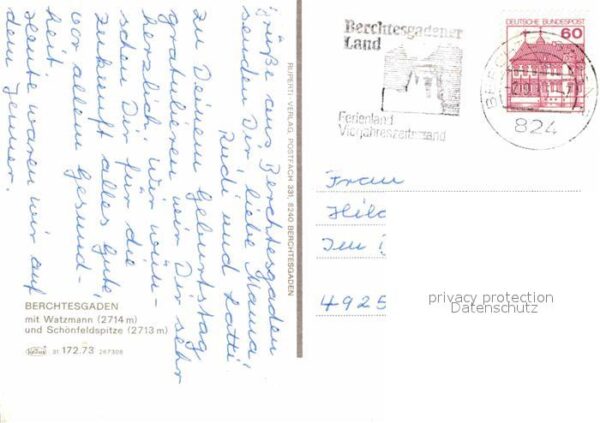 Grüße aus Berchtesgaden
senden Dir, liebe Mama,
Rudi und Lotti
Zu Deinem Geburtstag
gratulieren wir Dir sehr
herzlich. Wir wün-
schen Dir für die
Zukunft alles Gute,
vor allem Gesund-
heit.
Heute waren wir auf
dem Jenner.
BERCHTESGADEN
mit Watzmann (2714 m)
und Schönfeldspitze (2713 m)
172.73 247308
RUPERTI-VERLAG, POSTFACH 331, 8240 BERCHTESGADEN
Berchtesgadener
Land
Ferienland
Vierjahreszeitenland
DEUTSCHE BUNDESPOST
60
824
Frau
Hild
Im
4925
privacy protection
Datenschutz